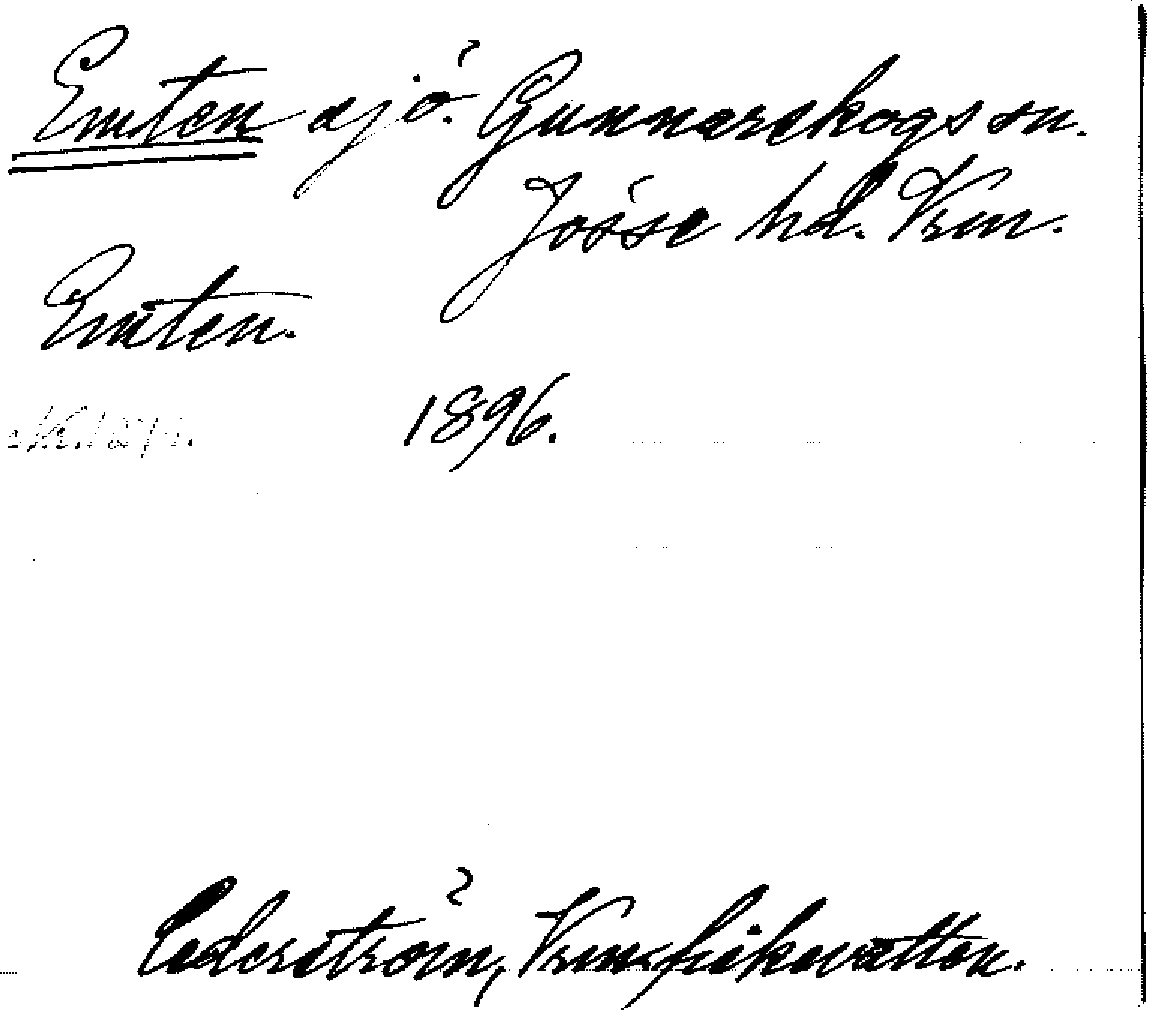 Emten sjö. Gunnarskogs sn.
Jösse hd. Vrm.
Emten.
1896.
Cederström, Vrm:s fiskevatten.